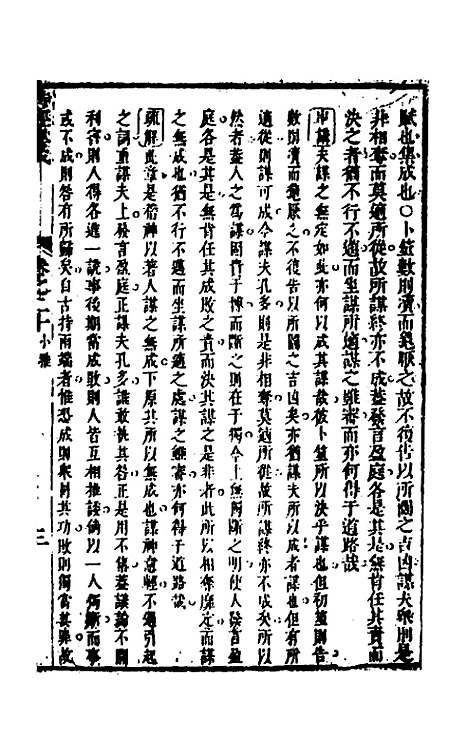 賦也集成也○卜筮數則瀆而龜厭之故不復告以所圖之吉凶謀夫衆則是
非相奪而莫適所從故所謀終亦不成蓋發言盈庭各是其是無肯任其責而
決之者猶不行不邁而坐謀所適謀之雖審而亦何得于道路哉
申講夫謀之無定如此亦何以成其謀哉彼卜筮所以決乎謀也但初筮則告
數則瀆而龜厭之不復告以所圖之吉凶矣亦猶謀夫所以成者謀也但有所
適從則謀可成今謀夫孔多則是非相奪莫適所從故所謀終亦不成矣所以
然者蓋人之爲謀固貴于博而斷之則在于獨今上無獨斷之明使人發言盈
庭各是其是無肯任其成敗之責而決其謀之是非者此所以相奪靡定而謀
之無成也猶不行不邁而坐謀所適之處謀之雖審亦何得于道路哉
疏解此章是卜以著人謀之無成下原其所以無成也謀神意輕不過引起
之詞重謀夫上發言盈庭正謀夫孔多誰敢執其咎正是用不集蓋議論不關
利害則人得各進一說事後期當成敗則人皆互相推諉倘以一人獨斷而事
或不成則咎有所歸矣自古持兩端者惟恐成則衆同其功敗則獨當其罪故
小雅